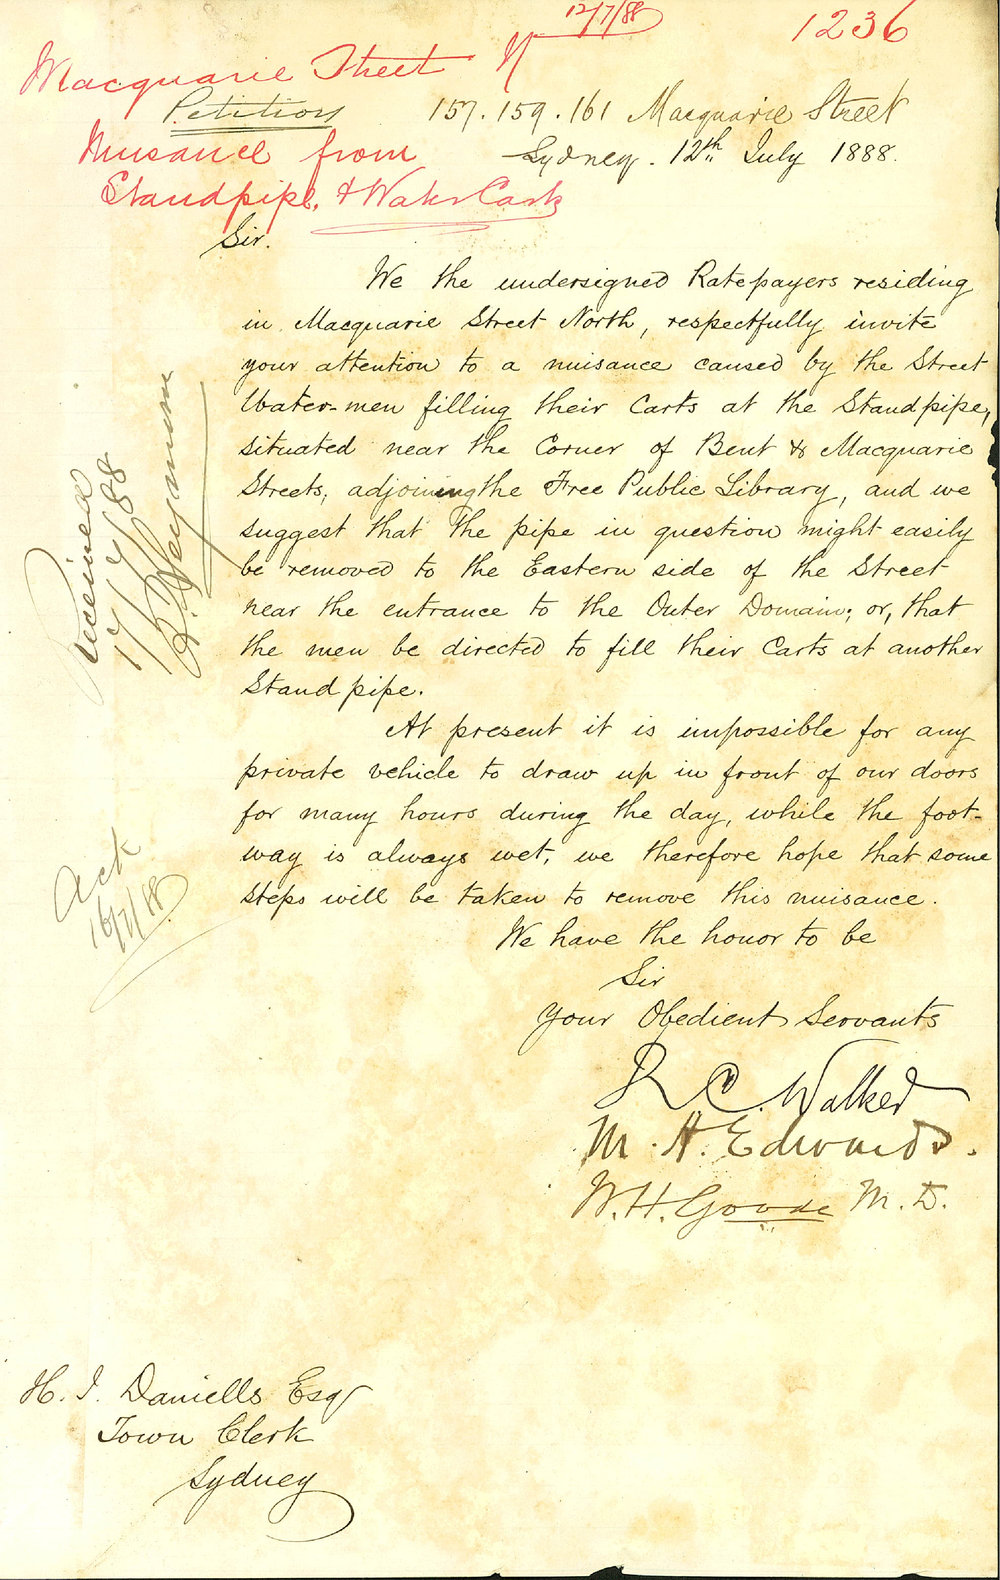 12/7/88
1236
Macquarie Street N
Petition
157. 159. 161 Macquarie Street
Nuisance from
Sydney. 12th July 1888.
Standpipe, & Water Cart
Sir.
We the undersigned Ratepayers residing
in Macquarie Street North, respectfully invite
your attention to a nuisance caused by the Street
Water-men filling their Carts at the Standpipe,
situated near the Corner of Bent & Macquarie
Streets, adjoining the Free Public Library, and we
suggest that the pipe in question might easily
be removed to the Eastern side of the Street
near the entrance to the Outer Domain; or, that
the men be directed to fill their Carts at another
Stand pipe.
At present it is impossible for any
private vehicle to draw up in front of our doors
for many hours during the day, while the foot-
way is always wet, we therefore hope that some
steps will be taken to remove this nuisance.
We have the honor to be
Sir
Your Obedient Servants
R C. Walker
M. A. Edwards.
W. H. Goode M. D.
Received
17/7/88
Ack
16/7/88
H. J. Daniells Esqr
Town Clerk
Sydney